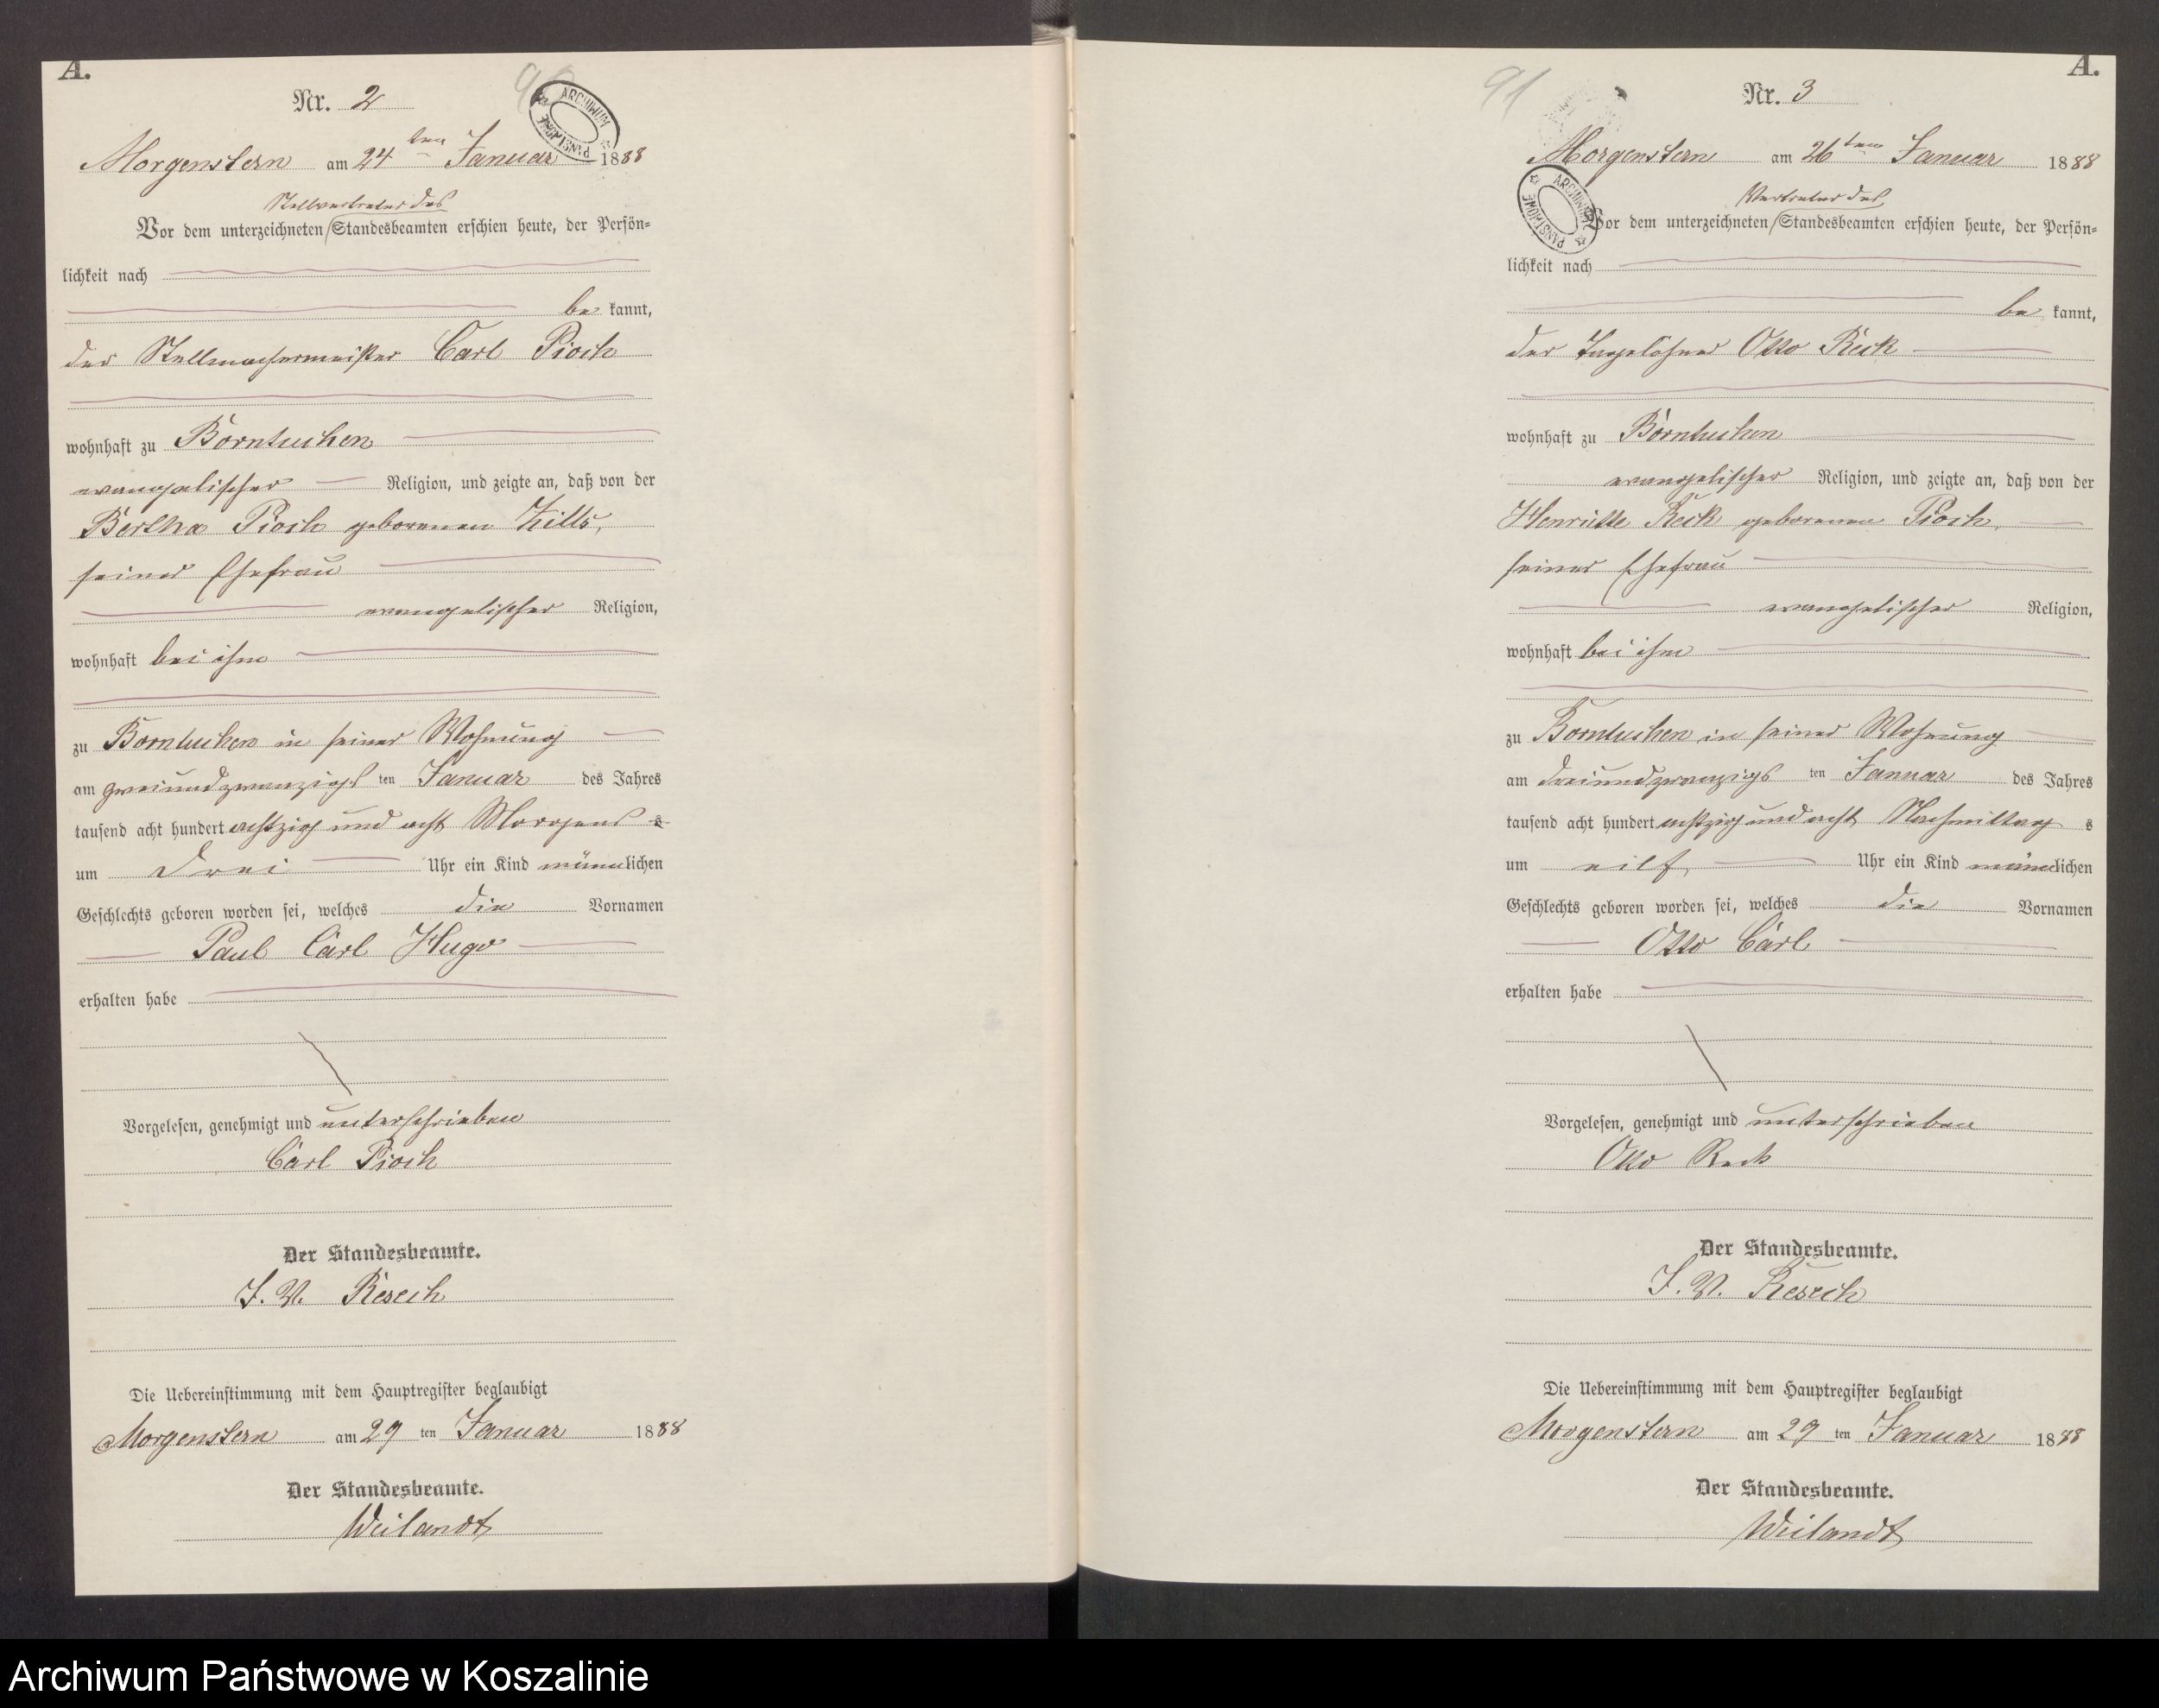 A.
Nr. 2
90
ARCHIWUM PAŃSTWOWE
Morgenstern am 24 ten Januar 1888
Stellvertreter des
Vor dem unterzeichneten/Standesbeamten erschien heute, der Persön-
lichkeit nach
be kannt,
der Stellmachermeister Carl Pioch
wohnhaft zu Borntuchen
evangelischer Religion, und zeigte an, daß von der
Bertha Pioch geborenen
seiner Ehefrau
evangelischer Religion,
wohnhaft bei ihm
zu Borntuchen in seiner Wohnung
am zweiundzwanzigs ten Januar des Jahres
tausend acht hundert achtzig und acht Morgens s
um drei Uhr ein Kind männlichen
Geschlechts geboren worden sei, welches die Vornamen
Paul Carl Hugo
erhalten habe
Vorgelesen, genehmigt und unterschrieben
Carl Pioch
Der Standesbeamte.
J. V. Resech
Die Uebereinstimmung mit dem Hauptregister beglaubigt
Morgenstern am 29 ten Januar 1888
Der Standesbeamte.
Weilandt
A.
91
Nr. 3
Morgenstern am 26 ten Januar 1888
ARCHIWUM PAŃSTWOWE
Vertreter des
Vor dem unterzeichneten/Standesbeamten erschien heute, der Persön-
lichkeit nach
be kannt,
der Tagelöhner Otto Reck
wohnhaft zu Borntuchen
evangelischer Religion, und zeigte an, daß von der
Henriette Reck geborenen Pioch,
seiner Ehefrau
evangelischer Religion,
wohnhaft bei ihm
zu Borntuchen in seiner Wohnung
am dreiundzwanzigs ten Januar des Jahres
tausend acht hundert achtzig und acht Nachmittag s
um eilf Uhr ein Kind männlichen
Geschlechts geboren worden sei, welches die Vornamen
Otto Carl
erhalten habe
Vorgelesen, genehmigt und unterschrieben
Otto Reck
Der Standesbeamte.
J. V. Resech
Die Uebereinstimmung mit dem Hauptregister beglaubigt
Morgenstern am 29 ten Januar 1888
Der Standesbeamte.
Weilandt
Archiwum Państwowe w Koszalinie